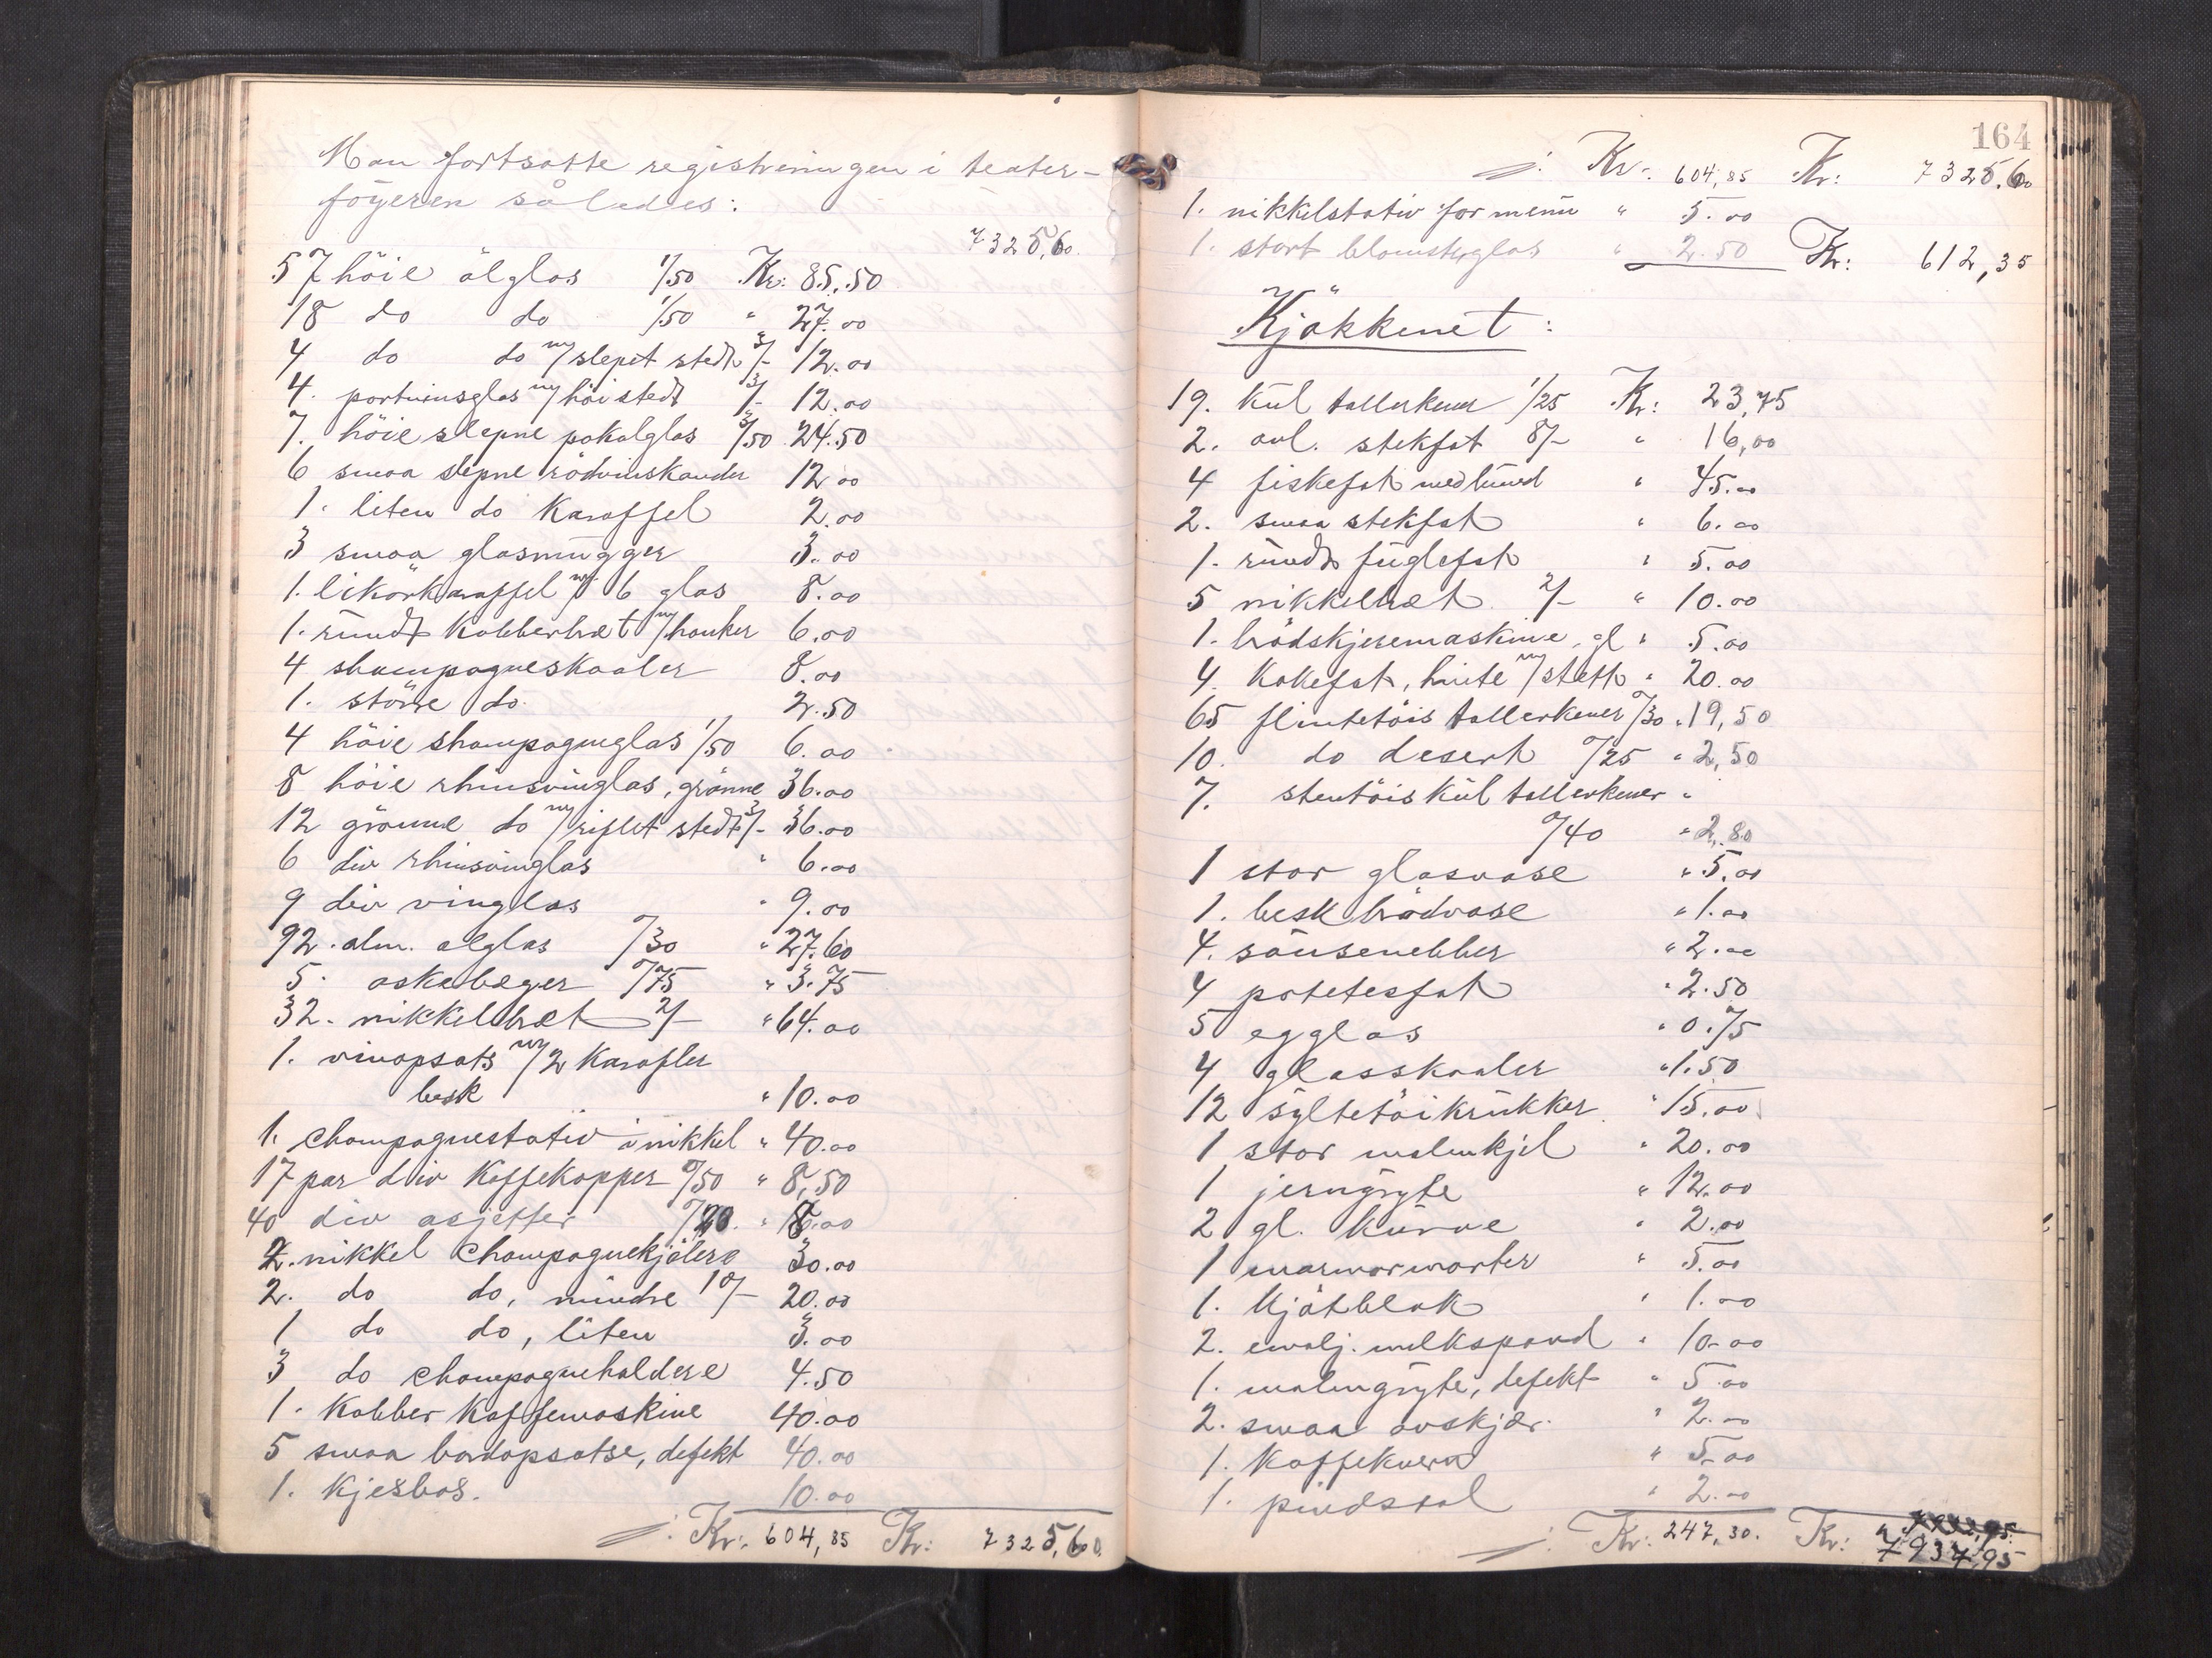 Man fortsatte registreringen i teater-
föyeren således:
7325,60.
57 höie ölglas 1/50 Kr: 85.50
18 do do 1/50 " 27.00
4 do do m/slepet stedt 3/- 12.00
4. portvinsglas m/höi stedt 3/- 12.00
7. höie slepne pokalglas 3/50 24.50
6 smaa slepne rödvinskander 12.00
1. liten do Karaffel 2.00
3 smaa glasmugger 3.00
1. likörkaraffel m/ 6 glas 8.00
1. rundt Kobberbræt m/hanker 6.00
4 shampagneskaaler 8.00
1. större do 2.50
4 höie shampagneglas 1/50 6.00
8 höie rhinsvinglas, grönne 36.00
12 grönne do m/riflet stedt 3/- 36.00
6 div rhinsvinglas " 6.00
9 div vinglas " 9.00
92. alm. ølglas 0/30 " 27.60
5. askebæger 0/75 " 3.75
32. nikkelbræt 2/- " 64.00
1. vinopsats m/2 Karafler
besk " 10.00
1. Champagnestativ i nikkel " 40.00
17 par div Kaffekopper 0/50 " 8,50
40 div asjetter 0/20. " 8.00
2. nikkel Champagnekjölere 30.00
2. do do, mindre 10/- 20.00
1 do do, liten 3.00
3 do Champagneholdere 4.50
1. Kobber Kaffemaskine 40.00
5 smaa bordopsatse, defekt 40.00
1. Kjesbos. 10.00
Kr: 604,85 Kr: 7325,60.
164
Kr: 604,85 Kr: 7325.60
1. nikkelstativ for menu " 5.00
1. stort blomsterglas " 2.50 Kr: 612,35
Kjökkenet:
19. Kul tallerkener 1/25 Kr: 23,75
2. avl. stekfat 8/- " 16,00
4 fiskefat med bund " 45.00
2. smaa stekfat " 6.00
1. rundt fuglefat " 5.00
5 nikkelbræt 2/- " 10.00
1. brödskjeremaskine, gl " 5.00
4. Kakefat, hvite m/stett " 20.00
65 flintetöis tallerkener 0/30 " 19,50
10. do desert 0/25 " 2,50
7. stentöis Kul tallerkener "
0/40 " 2,80
1 stor glasvase " 5.00
1. besk brödvase " 1.00
4. sausenebber " 2.00
4 potetesfat " 2.50
5 egglas " 0.75
4 glasskaaler " 1.50
12 syltetöikrukker " 15.00
1 stor malmkjel " 20.00
1 jerngryte " 12.00
2 gl. kurve " 2.00
1 marmormorter " 5.00
1. Kjötblok " 1.00
2. emalj. melkspand " 10.00
1. malmgryte, defekt " 5.00
2. smaa auskjær. " 2.00
1. Kaffekvern " 5.00
1. pindsoal " 2.00
Kr: 247,30. Kr: 7937,95